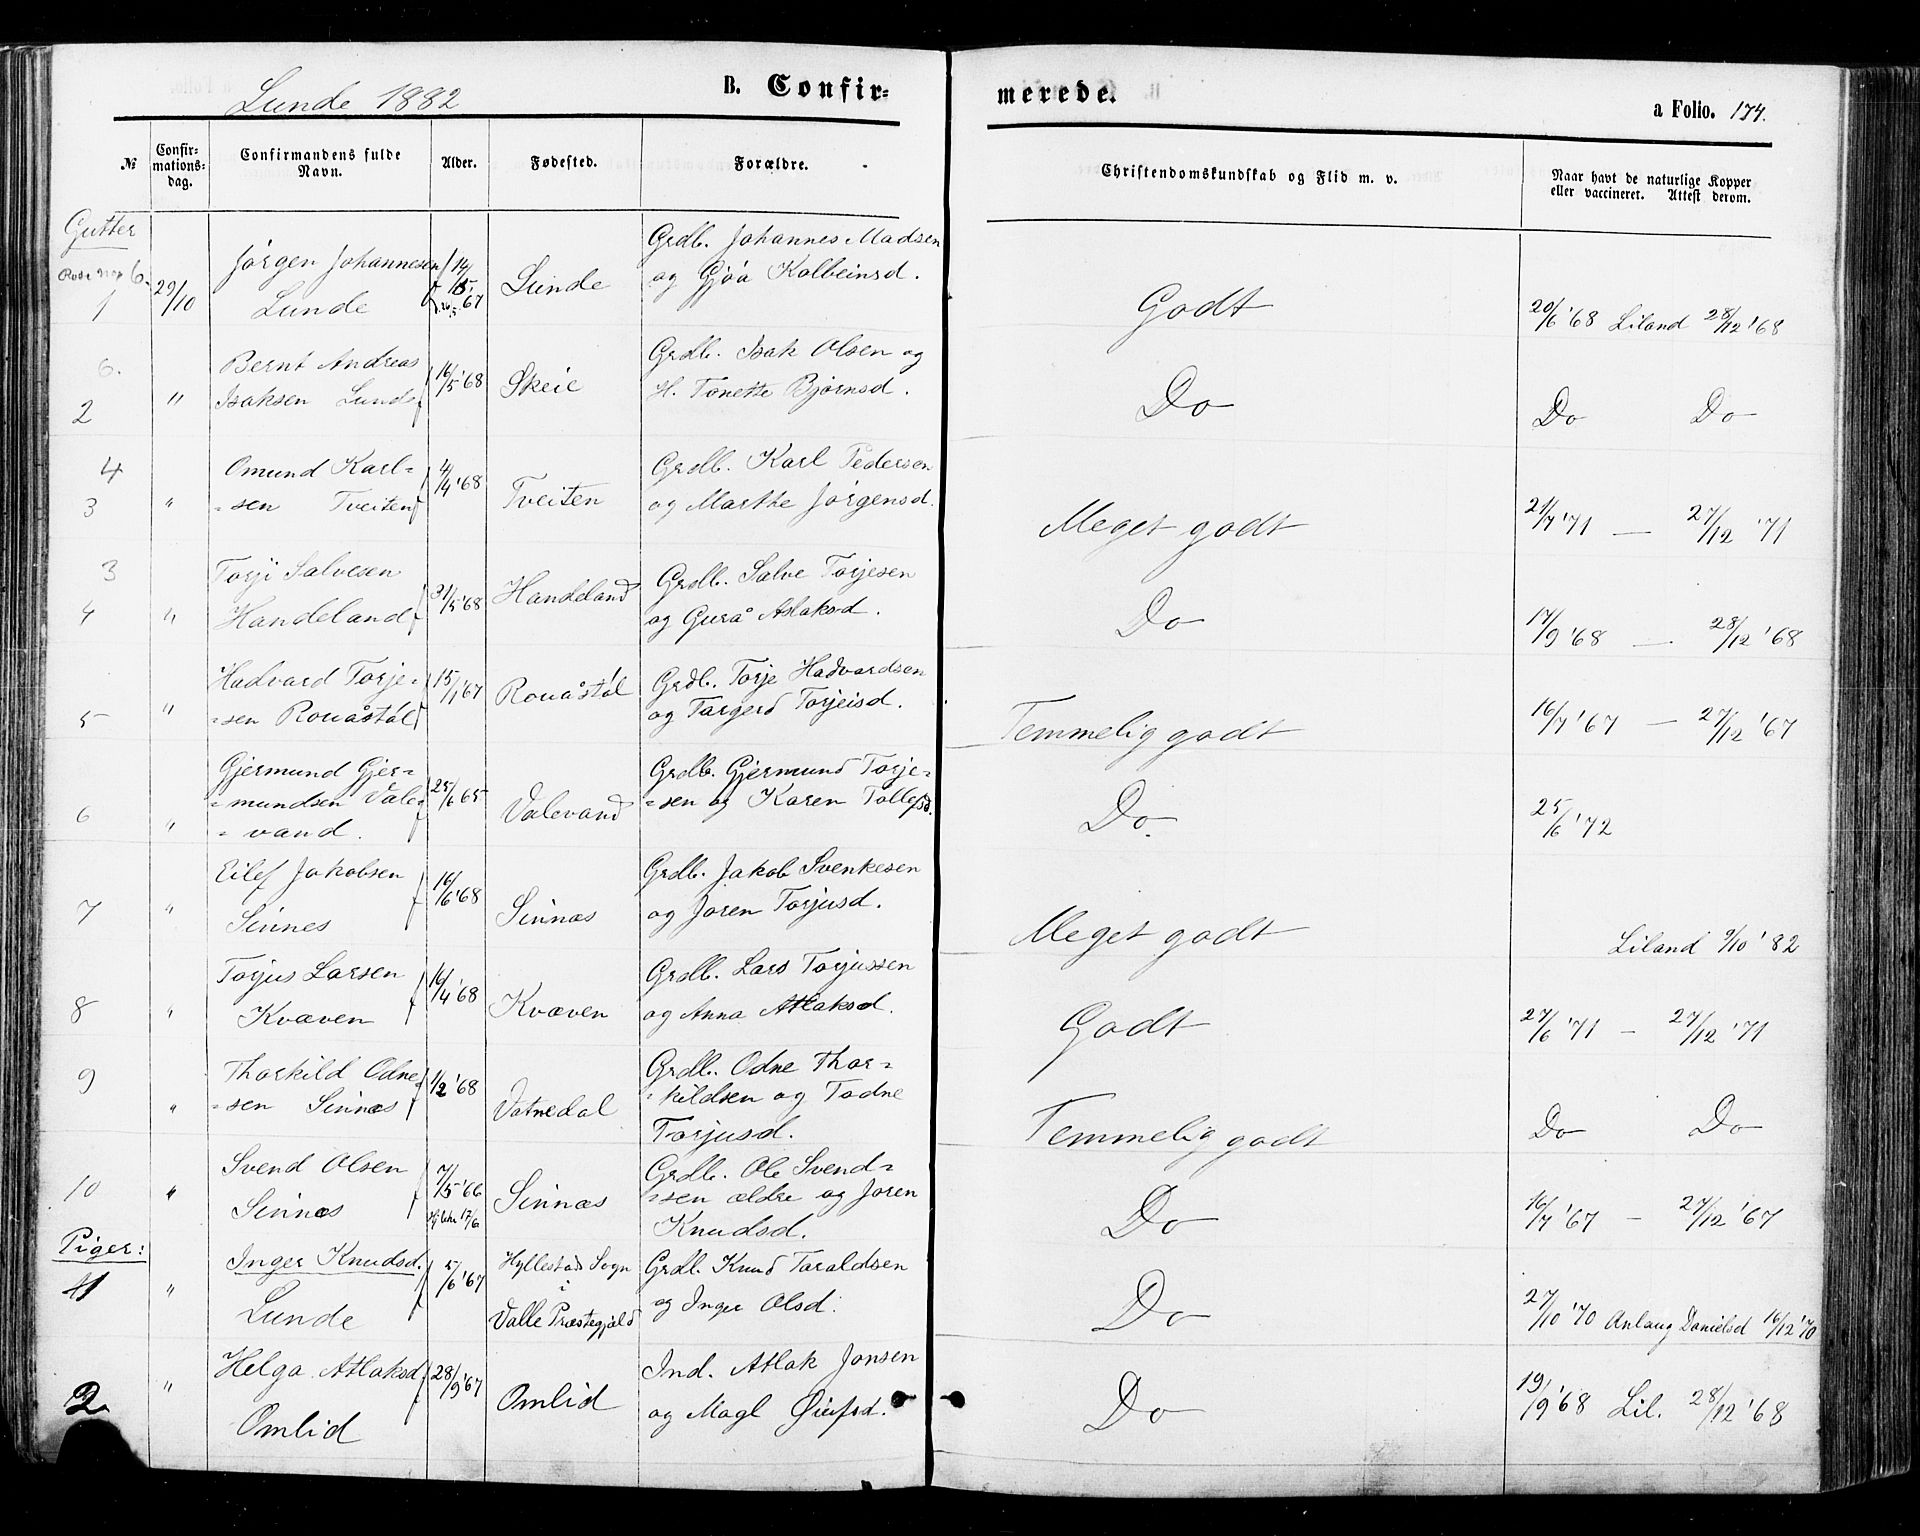 Lunde 1882
B. Confir=
merede.
a Folio. 174.
№
Confir-
mations-
dag.
Confirmandens fulde
Navn.
Alder.
Fødested.
Forældre.
Christendomskundskab og Flid m. v.
Naar havt de naturlige Kopper
eller vaccineret. Attest derom.
Gutter
6.
1
29/10
Jørgen Johannesen
Lunde
14/15. 67
Lunde
Grdb. Johannes Madsen
og Gjøa Kolbeinsd.
Godt
20/6 '68 Liland 28/12 '68
6.
2
"
Bernt Andreas
Isaksen Lunde
16/5 '68
Skeie
Grdb. Isak Olsen og
H. Tonette Bjørnsd.
Do
Do Do
4
3
"
Omund Karl=
=sen Tveiten
4/4 '68
Tveiten
Grdb. Karl Pedersen
og Marthe Jørgensd.
Meget godt
21/7 '71 — 27/12 '71
3
4
"
Torji Salvesen
Handeland
31/5 '68
Handeland
Grdb. Salve Torjesen
og Gurå Aslaksd.
Do
17/9 '68 — 28/12 '68
5
"
Hadvard Torje=
=sen Rouåstøl
15/1 '67
Rouåstøl
Grdb. Torje Hadvardsen
og Targerd Torjeisd.
Temmelig godt
16/7 '67 — 27/12 '67
6
"
Gjermund Gjer=
=mundsen Vale=
=vand.
25/6 '65
Valevand
Grdb. Gjermund Torje=
=sen og Karen Tollefsd.
Do.
25/6 '72
7
"
Eilef Jakobsen
Sinnes
16/6 '68
Sinnæs
Grdb. Jakob Svenkesen
og Joren Torjusd.
Meget godt
Liland 9/10 '82
8
"
Torjus Larsen
Kvæven
16/4 '68
Kvæven
Grdb. Lars Torjussen
og Anna Atlaksd.
Godt
27/6 '71 — 27/12 '71
9
"
Thorkild Odne=
=sen Sinnæs
1/2 '68
Vatnedal
Grdb. Odne Thor=
=kildsen og Todne
Torjusd.
Temmelig godt
Do Do
10
"
Svend Olsen
Sinnæs
7/5 '66
17/6
Sinnæs
Grdb. Ole Svend=
=sen ældre og Joren
Knudsd.
Do
16/7 '67 — 27/12 '67
Piger:
1
"
Inger Knudsd.
Lunde
5/6 '67
Hyllestad Sogn
i
Valle Præstegjæld
Grdb. Knud Taraldsen
og Inger Olsd.
Do
27/10 '70 Anlaug Danielsd 16/12 '70
2
"
Helga Atlaksd
Omlid
28/9 '67
Omlid
Ind. Atlak Jonsen
og Magl Øiufsd.
Do
19/9 '68 Lil. 28/12 '68